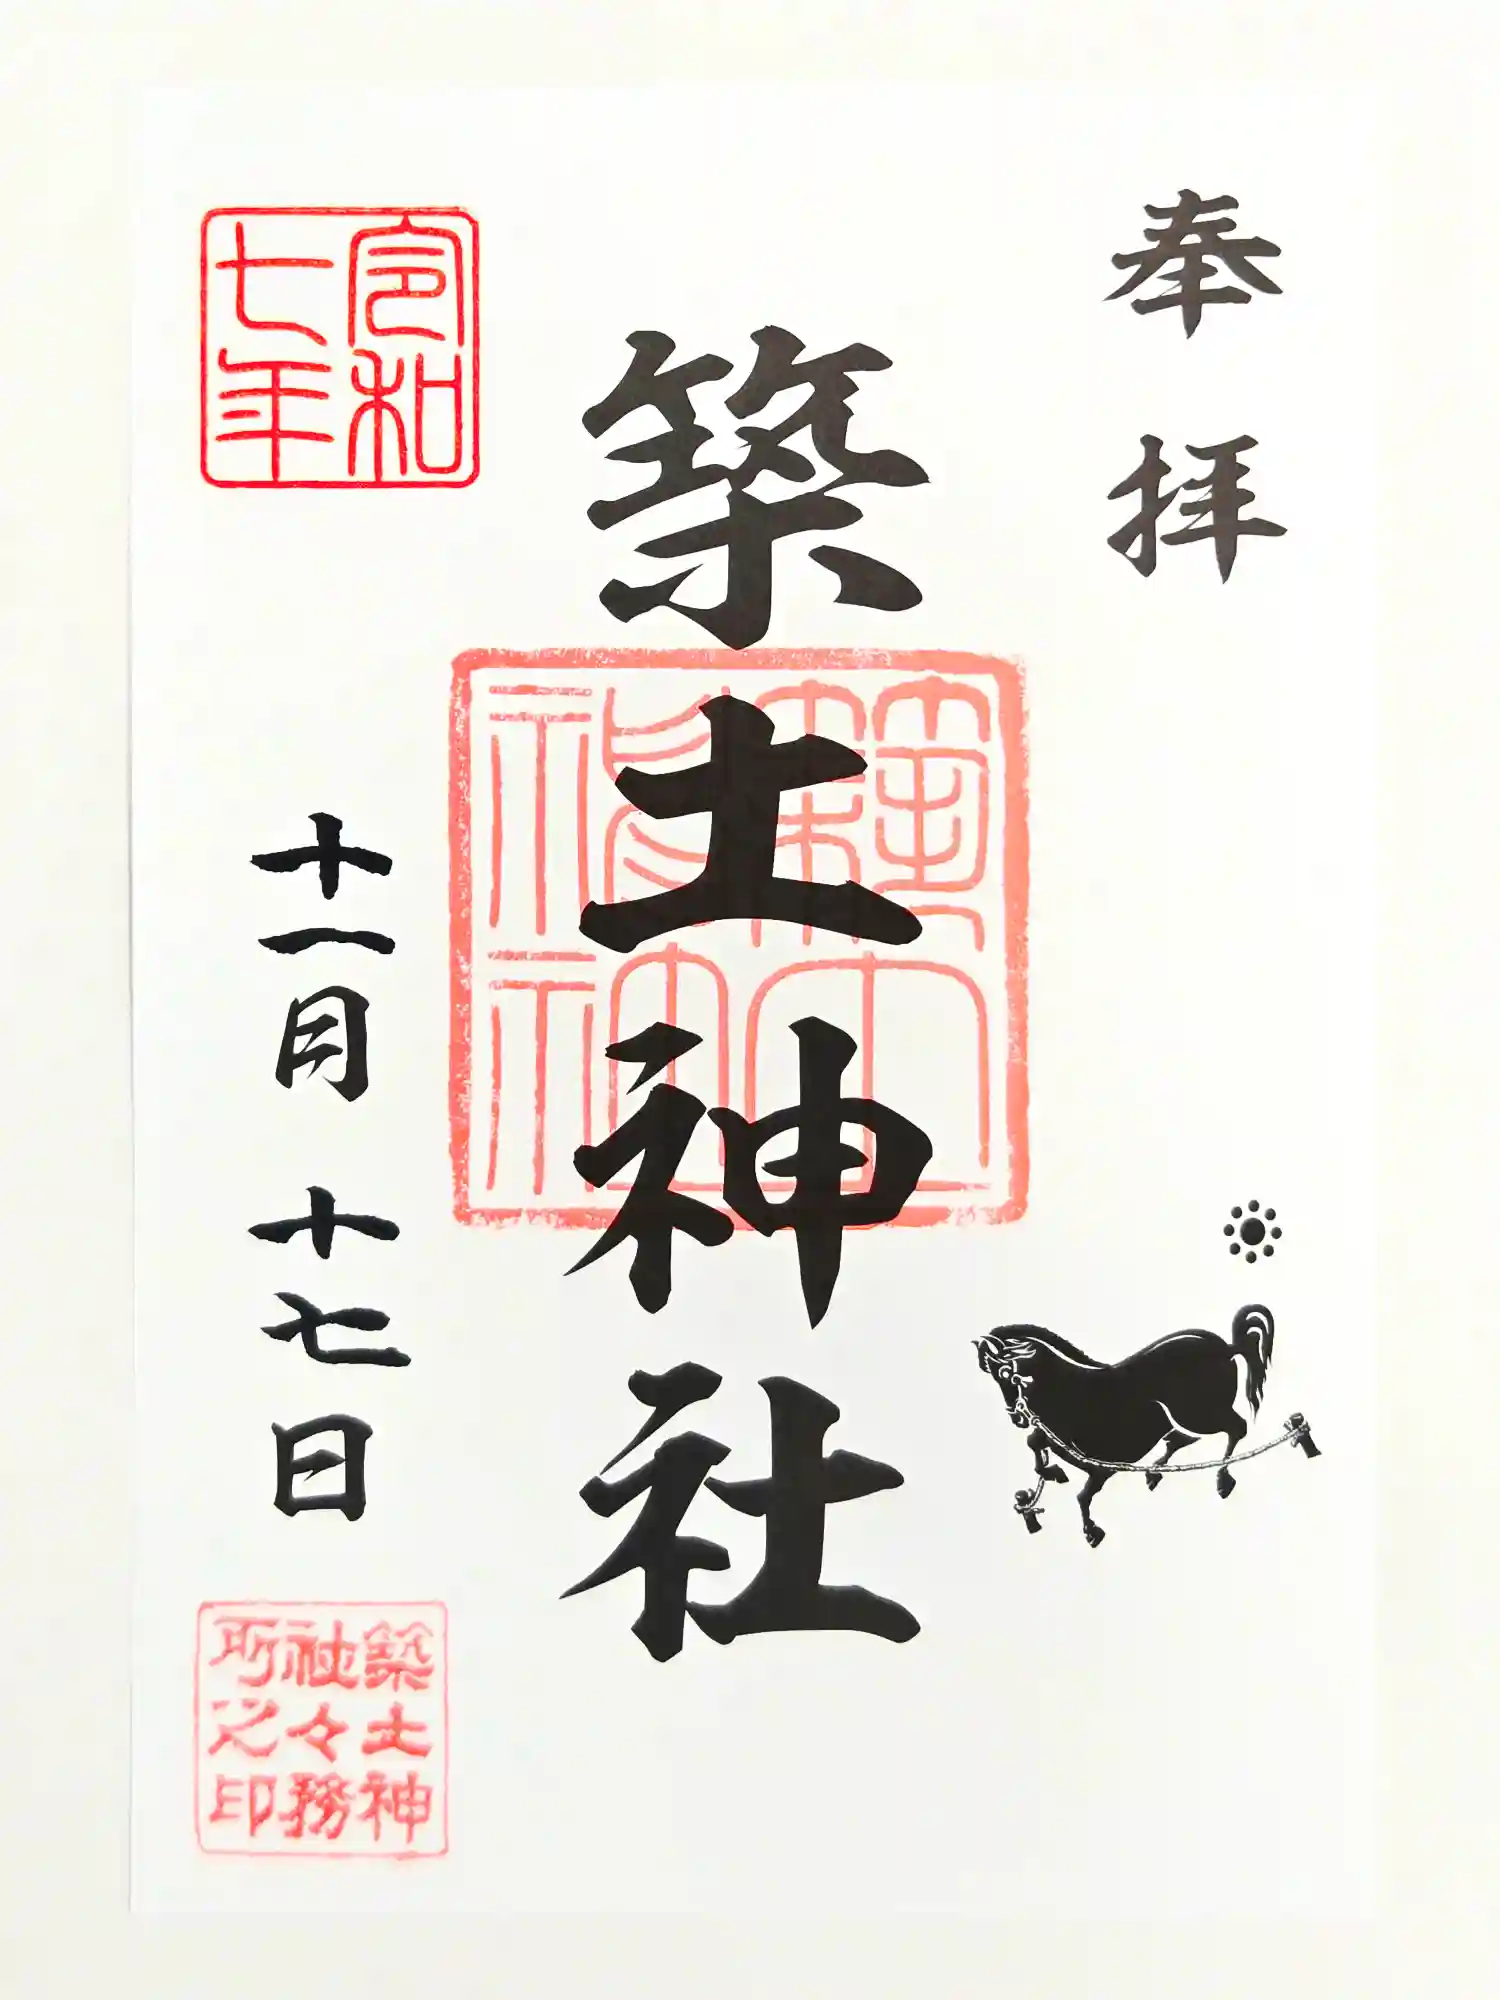 奉拝
築土神社
令和
七年
十一月十七日
築土神
社々務
所之印